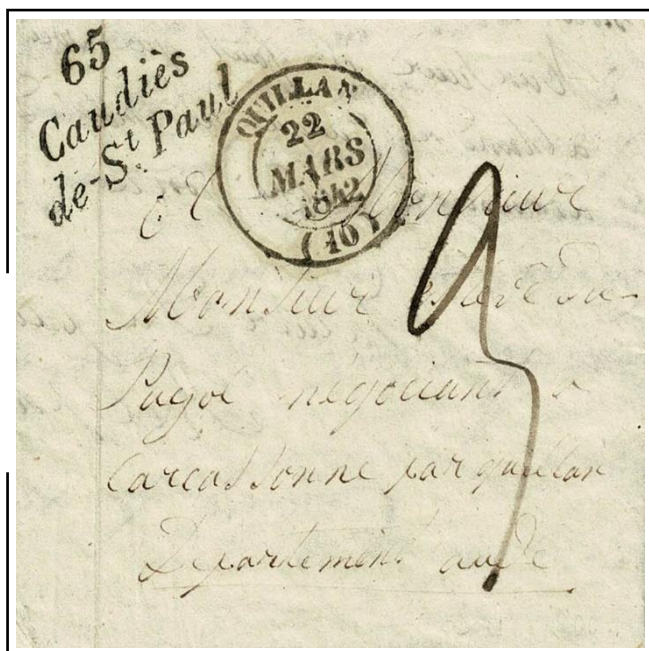 65
Caudiès
de-St. Paul
QUILLAN
22
MARS
1842
(10)
3
Monsieur
Monsieur
Pujol négociant a
Carcassonne par quillan
Departement aude